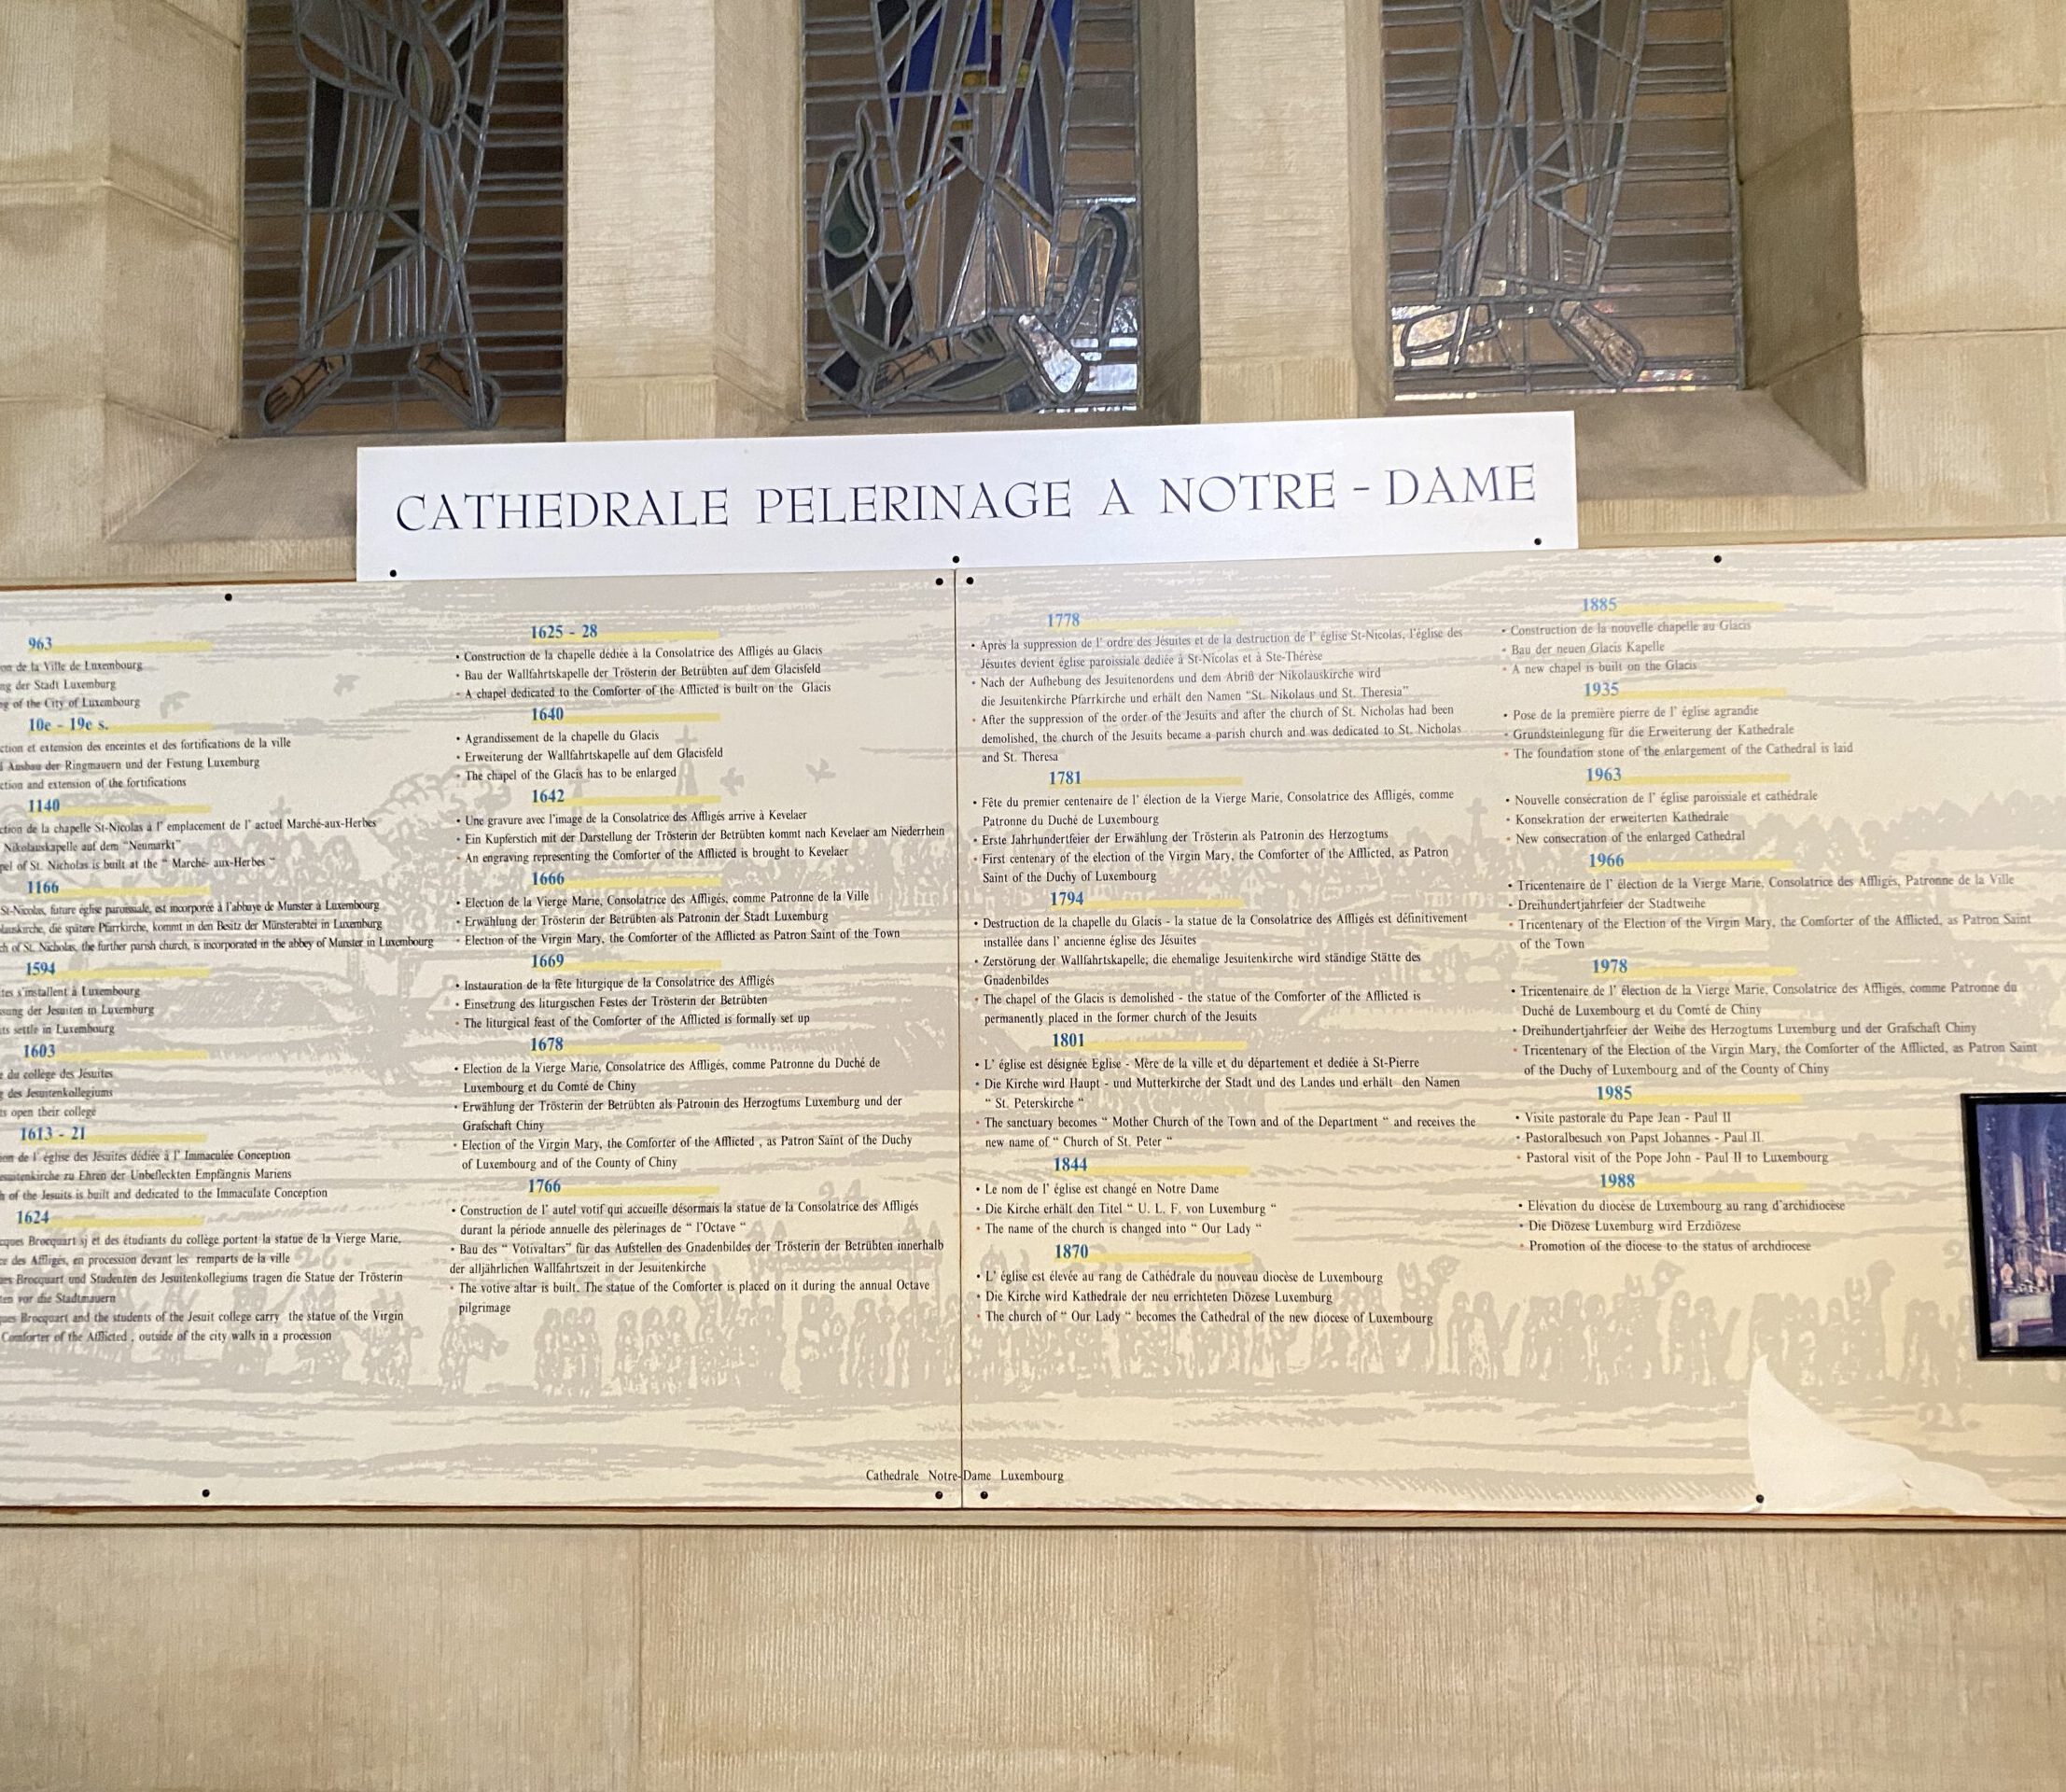 CATHEDRALE PELERINAGE A NOTRE - DAME
963
de la Ville de Luxembourg
der Stadt Luxemburg
of the City of Luxembourg
10e - 19e s.
et extension des enceintes et des fortifications de la ville
Ausbau der Ringmauern und der Festung Luxemburg
and extension of the fortifications
1140
de la chapelle St-Nicolas à l' emplacement de l' actuel Marché-aux-Herbes
Nikolauskapelle auf dem "Neumarkt"
of St. Nicholas is built at the " Marché- aux-Herbes "
1166
St-Nicolas, future église paroissiale, est incorporée à l'abbaye de Munster à Luxembourg
die spätere Pfarrkirche, kommt in den Besitz der Münsterabtei in Luxemburg
of St. Nicholas, the further parish church, is incorporated in the abbey of Munster in Luxembourg
1594
s'installent à Luxembourg
der Jesuiten in Luxemburg
settle in Luxembourg
1603
du collège des Jésuites
des Jesuitenkollegiums
open their college
1613 - 21
de l' église des Jésuites dédiée à l' Immaculée Conception
zu Ehren der Unbefleckten Empfängnis Mariens
of the Jesuits is built and dedicated to the Immaculate Conception
1624
Brocquart sj et des étudiants du collège portent la statue de la Vierge Marie,
des Affligés, en procession devant les remparts de la ville
Brocquart und Studenten des Jesuitenkollegiums tragen die Statue der Trösterin
vor die Stadtmauern
Brocquart and the students of the Jesuit college carry the statue of the Virgin
Comforter of the Afflicted , outside of the city walls in a procession
1625 - 28
• Construction de la chapelle dédiée à la Consolatrice des Affligés au Glacis
• Bau der Wallfahrtskapelle der Trösterin der Betrübten auf dem Glacisfeld
• A chapel dedicated to the Comforter of the Afflicted is built on the Glacis
1640
• Agrandissement de la chapelle du Glacis
• Erweiterung der Wallfahrtskapelle auf dem Glacisfeld
• The chapel of the Glacis has to be enlarged
1642
• Une gravure avec l'image de la Consolatrice des Affligés arrive à Kevelaer
• Ein Kupferstich mit der Darstellung der Trösterin der Betrübten kommt nach Kevelaer am Niederrhein
• An engraving representing the Comforter of the Afflicted is brought to Kevelaer
1666
• Election de la Vierge Marie, Consolatrice des Affligés, comme Patronne de la Ville
• Erwählung der Trösterin der Betrübten als Patronin der Stadt Luxemburg
• Election of the Virgin Mary, the Comforter of the Afflicted as Patron Saint of the Town
1669
• Instauration de la fête liturgique de la Consolatrice des Affligés
• Einsetzung des liturgischen Festes der Trösterin der Betrübten
• The liturgical feast of the Comforter of the Afflicted is formally set up
1678
• Election de la Vierge Marie, Consolatrice des Affligés, comme Patronne du Duché de
Luxembourg et du Comté de Chiny
• Erwählung der Trösterin der Betrübten als Patronin des Herzogtums Luxemburg und der
Grafschaft Chiny
• Election of the Virgin Mary, the Comforter of the Afflicted , as Patron Saint of the Duchy
of Luxembourg and of the County of Chiny
1766
• Construction de l' autel votif qui accueille désormais la statue de la Consolatrice des Affligés
durant la période annuelle des pèlerinages de " l'Octave "
• Bau des " Votivaltars" für das Aufstellen des Gnadenbildes der Trösterin der Betrübten innerhalb
der alljährlichen Wallfahrtszeit in der Jesuitenkirche
• The votive altar is built. The statue of the Comforter is placed on it during the annual Octave
pilgrimage
1778
• Après la suppression de l' ordre des Jésuites et de la destruction de l' église St-Nicolas, l'église des
Jésuites devient église paroissiale dediée à St-Nicolas et à Ste-Thérèse
• Nach der Aufhebung des Jesuitenordens und dem Abriß der Nikolauskirche wird
die Jesuitenkirche Pfarrkirche und erhält den Namen "St. Nikolaus und St. Theresia"
• After the suppression of the order of the Jesuits and after the church of St. Nicholas had been
demolished, the church of the Jesuits became a parish church and was dedicated to St. Nicholas
and St. Theresa
1781
• Fête du premier centenaire de l' élection de la Vierge Marie, Consolatrice des Affligés, comme
Patronne du Duché de Luxembourg
• Erste Jahrhundertfeier der Erwählung der Trösterin als Patronin des Herzogtums
• First centenary of the election of the Virgin Mary, the Comforter of the Afflicted, as Patron
Saint of the Duchy of Luxembourg
1794
• Destruction de la chapelle du Glacis - la statue de la Consolatrice des Affligés est définitivement
installée dans l' ancienne église des Jésuites
• Zerstörung der Wallfahrtskapelle; die ehemalige Jesuitenkirche wird ständige Stätte des
Gnadenbildes
• The chapel of the Glacis is demolished - the statue of the Comforter of the Afflicted is
permanently placed in the former church of the Jesuits
1801
• L' église est désignée Eglise - Mère de la ville et du département et dediée à St-Pierre
• Die Kirche wird Haupt - und Mutterkirche der Stadt und des Landes und erhält den Namen
" St. Peterskirche "
• The sanctuary becomes " Mother Church of the Town and of the Department " and receives the
new name of " Church of St. Peter "
1844
• Le nom de l' église est changé en Notre Dame
• Die Kirche erhält den Titel " U. L. F. von Luxemburg "
• The name of the church is changed into " Our Lady "
1870
• L' église est élevée au rang de Cathédrale du nouveau diocèse de Luxembourg
• Die Kirche wird Kathedrale der neu errichteten Diözese Luxemburg
• The church of " Our Lady " becomes the Cathedral of the new diocese of Luxembourg
1885
• Construction de la nouvelle chapelle au Glacis
• Bau der neuen Glacis Kapelle
• A new chapel is built on the Glacis
1935
• Pose de la première pierre de l' église agrandie
• Grundsteinlegung für die Erweiterung der Kathedrale
• The foundation stone of the enlargement of the Cathedral is laid
1963
• Nouvelle consécration de l' église paroissiale et cathédrale
• Konsekration der erweiterten Kathedrale
• New consecration of the enlarged Cathedral
1966
• Tricentenaire de l' élection de la Vierge Marie, Consolatrice des Affligés, Patronne de la Ville
• Dreihundertjahrfeier der Stadtweihe
• Tricentenary of the Election of the Virgin Mary, the Comforter of the Afflicted, as Patron Saint
of the Town
1978
• Tricentenaire de l' élection de la Vierge Marie, Consolatrice des Affligés, comme Patronne du
Duché de Luxembourg et du Comté de Chiny
• Dreihundertjahrfeier der Weihe des Herzogtums Luxemburg und der Grafschaft Chiny
• Tricentenary of the Election of the Virgin Mary, the Comforter of the Afflicted, as Patron Saint
of the Duchy of Luxembourg and of the County of Chiny
1985
• Visite pastorale du Pape Jean - Paul II
• Pastoralbesuch von Papst Johannes - Paul II.
• Pastoral visit of the Pope John - Paul II to Luxembourg
1988
• Elévation du diocèse de Luxembourg au rang d'archidiocèse
• Die Diözese Luxemburg wird Erzdiözese
• Promotion of the diocese to the status of archdiocese
Cathedrale Notre-Dame Luxembourg